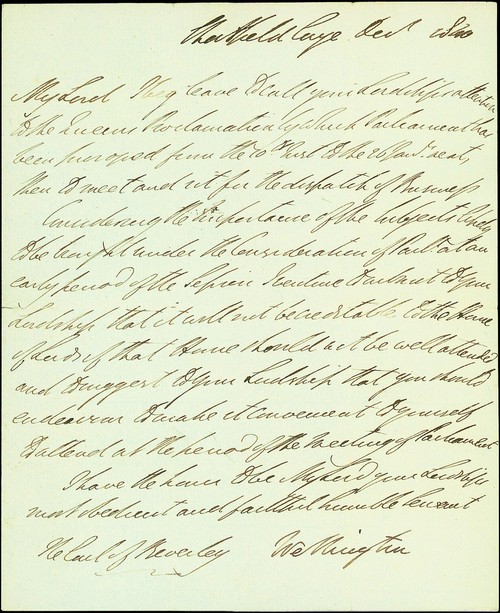 Strathfield Saye Decr 1840
My Lord I beg leave to call your Lordship's attention
to the Queen's Proclamation by which Parliament has
been prorogued from the 10th Inst to the 26 Janr next,
then to meet and sit for the dispatch of Business
Considering the importance of the subjects likely
to be brought under the Consideration of Parlt at an
early period of the Session I venture to submit to your
Lordship that it will not be creditable to the House
of Lords if that House should not be well attended
and to suggest to your Lordship that you should
endeavour to make it convenient to yourself
to attend at the period of the Meeting of Parliament
I have the honor to be My Lord your Lordship's
most obedient and faithful humble Servant
The Earl of Beverley Wellington